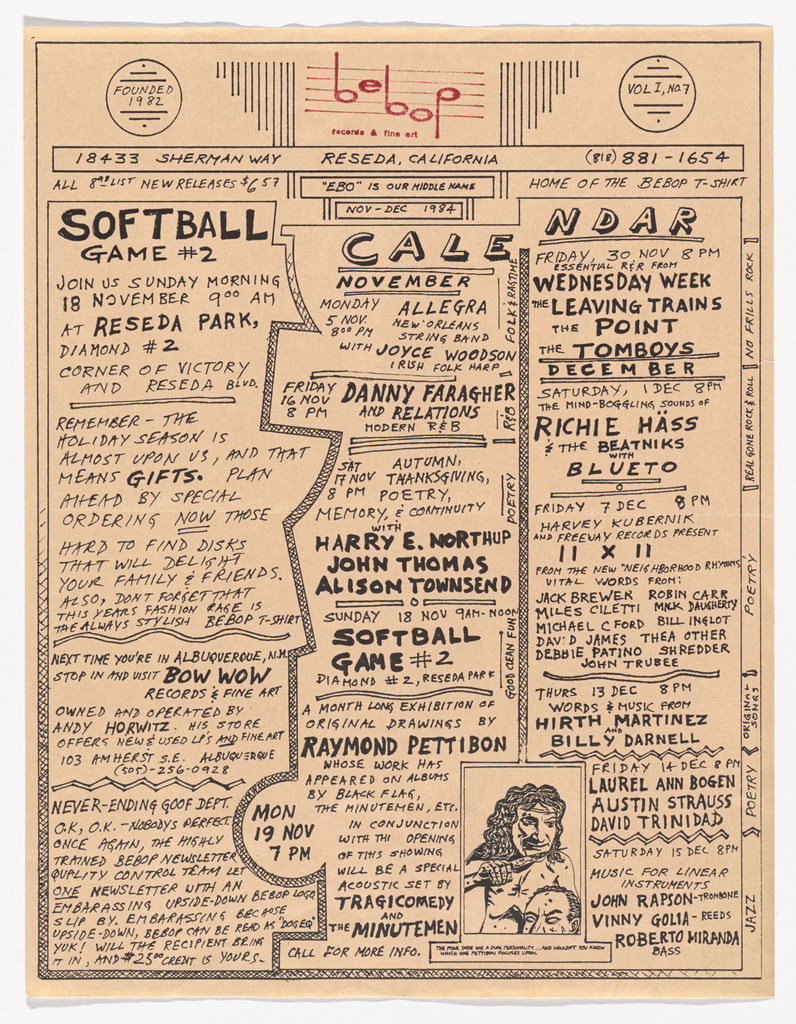 FOUNDED
1982
bebop
records & fine art
VOL I, No. 7
18433 SHERMAN WAY RESEDA, CALIFORNIA (818) 881-1654
ALL 8 98 LIST NEW RELEASES $6 57
"EBO" IS OUR MIDDLE NAME
HOME OF THE BEBOP T-SHIRT
NOV-DEC 1984
SOFTBALL
GAME #2
JOIN US SUNDAY MORNING
18 NOVEMBER 9 00 AM
AT RESEDA PARK,
DIAMOND #2
CORNER OF VICTORY
AND RESEDA BLVD.
REMEMBER - THE
HOLIDAY SEASON IS
ALMOST UPON US, AND THAT
MEANS GIFTS. PLAN
AHEAD BY SPECIAL
ORDERING NOW THOSE
HARD TO FIND DISKS
THAT WILL DELIGHT
YOUR FAMILY & FRIENDS.
ALSO, DON'T FORGET THAT
THIS YEARS FASHION RAGE IS
THE ALWAYS STYLISH BEBOP T-SHIRT
NEXT TIME YOU'RE IN ALBUQUERQUE, N.M.
STOP IN AND VISIT BOW WOW
RECORDS & FINE ART
OWNED AND OPERATED BY
ANDY HORWITZ. HIS STORE
OFFERS NEW & USED LP'S AND FINE ART
103 AMHERST S.E. ALBUQUERQUE
(505)-256-0928
NEVER-ENDING GOOF DEPT.
O.K, O.K. - NOBODYS PERFECT.
ONCE AGAIN, THE HIGHLY
TRAINED BEBOP NEWSLETTER
QUALITY CONTROL TEAM LET
ONE NEWSLETTER WITH AN
EMBARASSING UPSIDE-DOWN BEBOP LOGO
SLIP BY. EMBARASSING BECAUSE
UPSIDE-DOWN, BEBOP CAN BE READ AS 'DOGEB'
YUK! WILL THE RECIPIENT BRING
IT IN, AND $25 00 CREDIT IS YOURS.
CALE
NOVEMBER
MONDAY
5 NOV.
8 00 PM
ALLEGRA
NEW ORLEANS
STRING BAND
WITH JOYCE WOODSON
IRISH FOLK HARP
FOLK & RAGTIME
FRIDAY
16 NOV
8 PM
DANNY FARAGHER
AND RELATIONS
MODERN R&B
R&B
SAT
17 NOV
8 PM
AUTUMN,
THANKSGIVING,
POETRY,
MEMORY, & CONTINUITY
WITH
HARRY E. NORTHUP
JOHN THOMAS
ALISON TOWNSEND
POETRY
SUNDAY 18 NOV 9AM-NOON
SOFTBALL
GAME #2
DIAMOND #2, RESEDA PARK
GOOD CLEAN FUN
A MONTH LONG EXHIBITION OF
ORIGINAL DRAWINGS BY
RAYMOND PETTIBON
WHOSE WORK HAS
APPEARED ON ALBUMS
BY BLACK FLAG,
THE MINUTEMEN, ETC.
MON
19 NOV
7 PM
IN CONJUNCTION
WITH THE OPENING
OF THIS SHOWING
WILL BE A SPECIAL
ACOUSTIC SET BY
TRAGICOMEDY
AND
THE MINUTEMEN
CALL FOR MORE INFO.
THE PUNK DUDE HAS A DUAL PERSONALITY....AND WOULDN'T YOU KNOW
WHICH ONE PETTIBON FOCUSES UPON.
NDAR
FRIDAY, 30 NOV 8 PM
ESSENTIAL R&R FROM
WEDNESDAY WEEK
THE LEAVING TRAINS
THE POINT
THE TOMBOYS
NO FRILLS ROCK
DECEMBER
SATURDAY, 1 DEC 8PM
THE MIND-BOGGLING SOUNDS OF
RICHIE HÄSS
& THE BEATNIKS
WITH
BLUETO
REAL GONE ROCK & ROLL
FRIDAY 7 DEC 8 PM
HARVEY KUBERNIK
AND FREEWAY RECORDS PRESENT
11 X 11
FROM THE NEW "NEIGHBORHOOD RHYTHMS"
VITAL WORDS FROM:
JACK BREWER ROBIN CARR
MILES CILETTI MICK DAUGHERTY
MICHAEL C FORD BILL INGLOT
DAVID JAMES THEA OTHER
DEBBIE PATINO SHREDDER
JOHN TRUBEE
POETRY
THURS 13 DEC 8 PM
WORDS & MUSIC FROM
HIRTH MARTINEZ
AND
BILLY DARNELL
ORIGINAL
SONGS
FRIDAY 14 DEC 8 PM
LAUREL ANN BOGEN
AUSTIN STRAUSS
DAVID TRINIDAD
POETRY
SATURDAY 15 DEC 8PM
MUSIC FOR LINEAR
INSTRUMENTS
JOHN RAPSON - TROMBONE
VINNY GOLIA - REEDS
ROBERTO MIRANDA
BASS
JAZZ